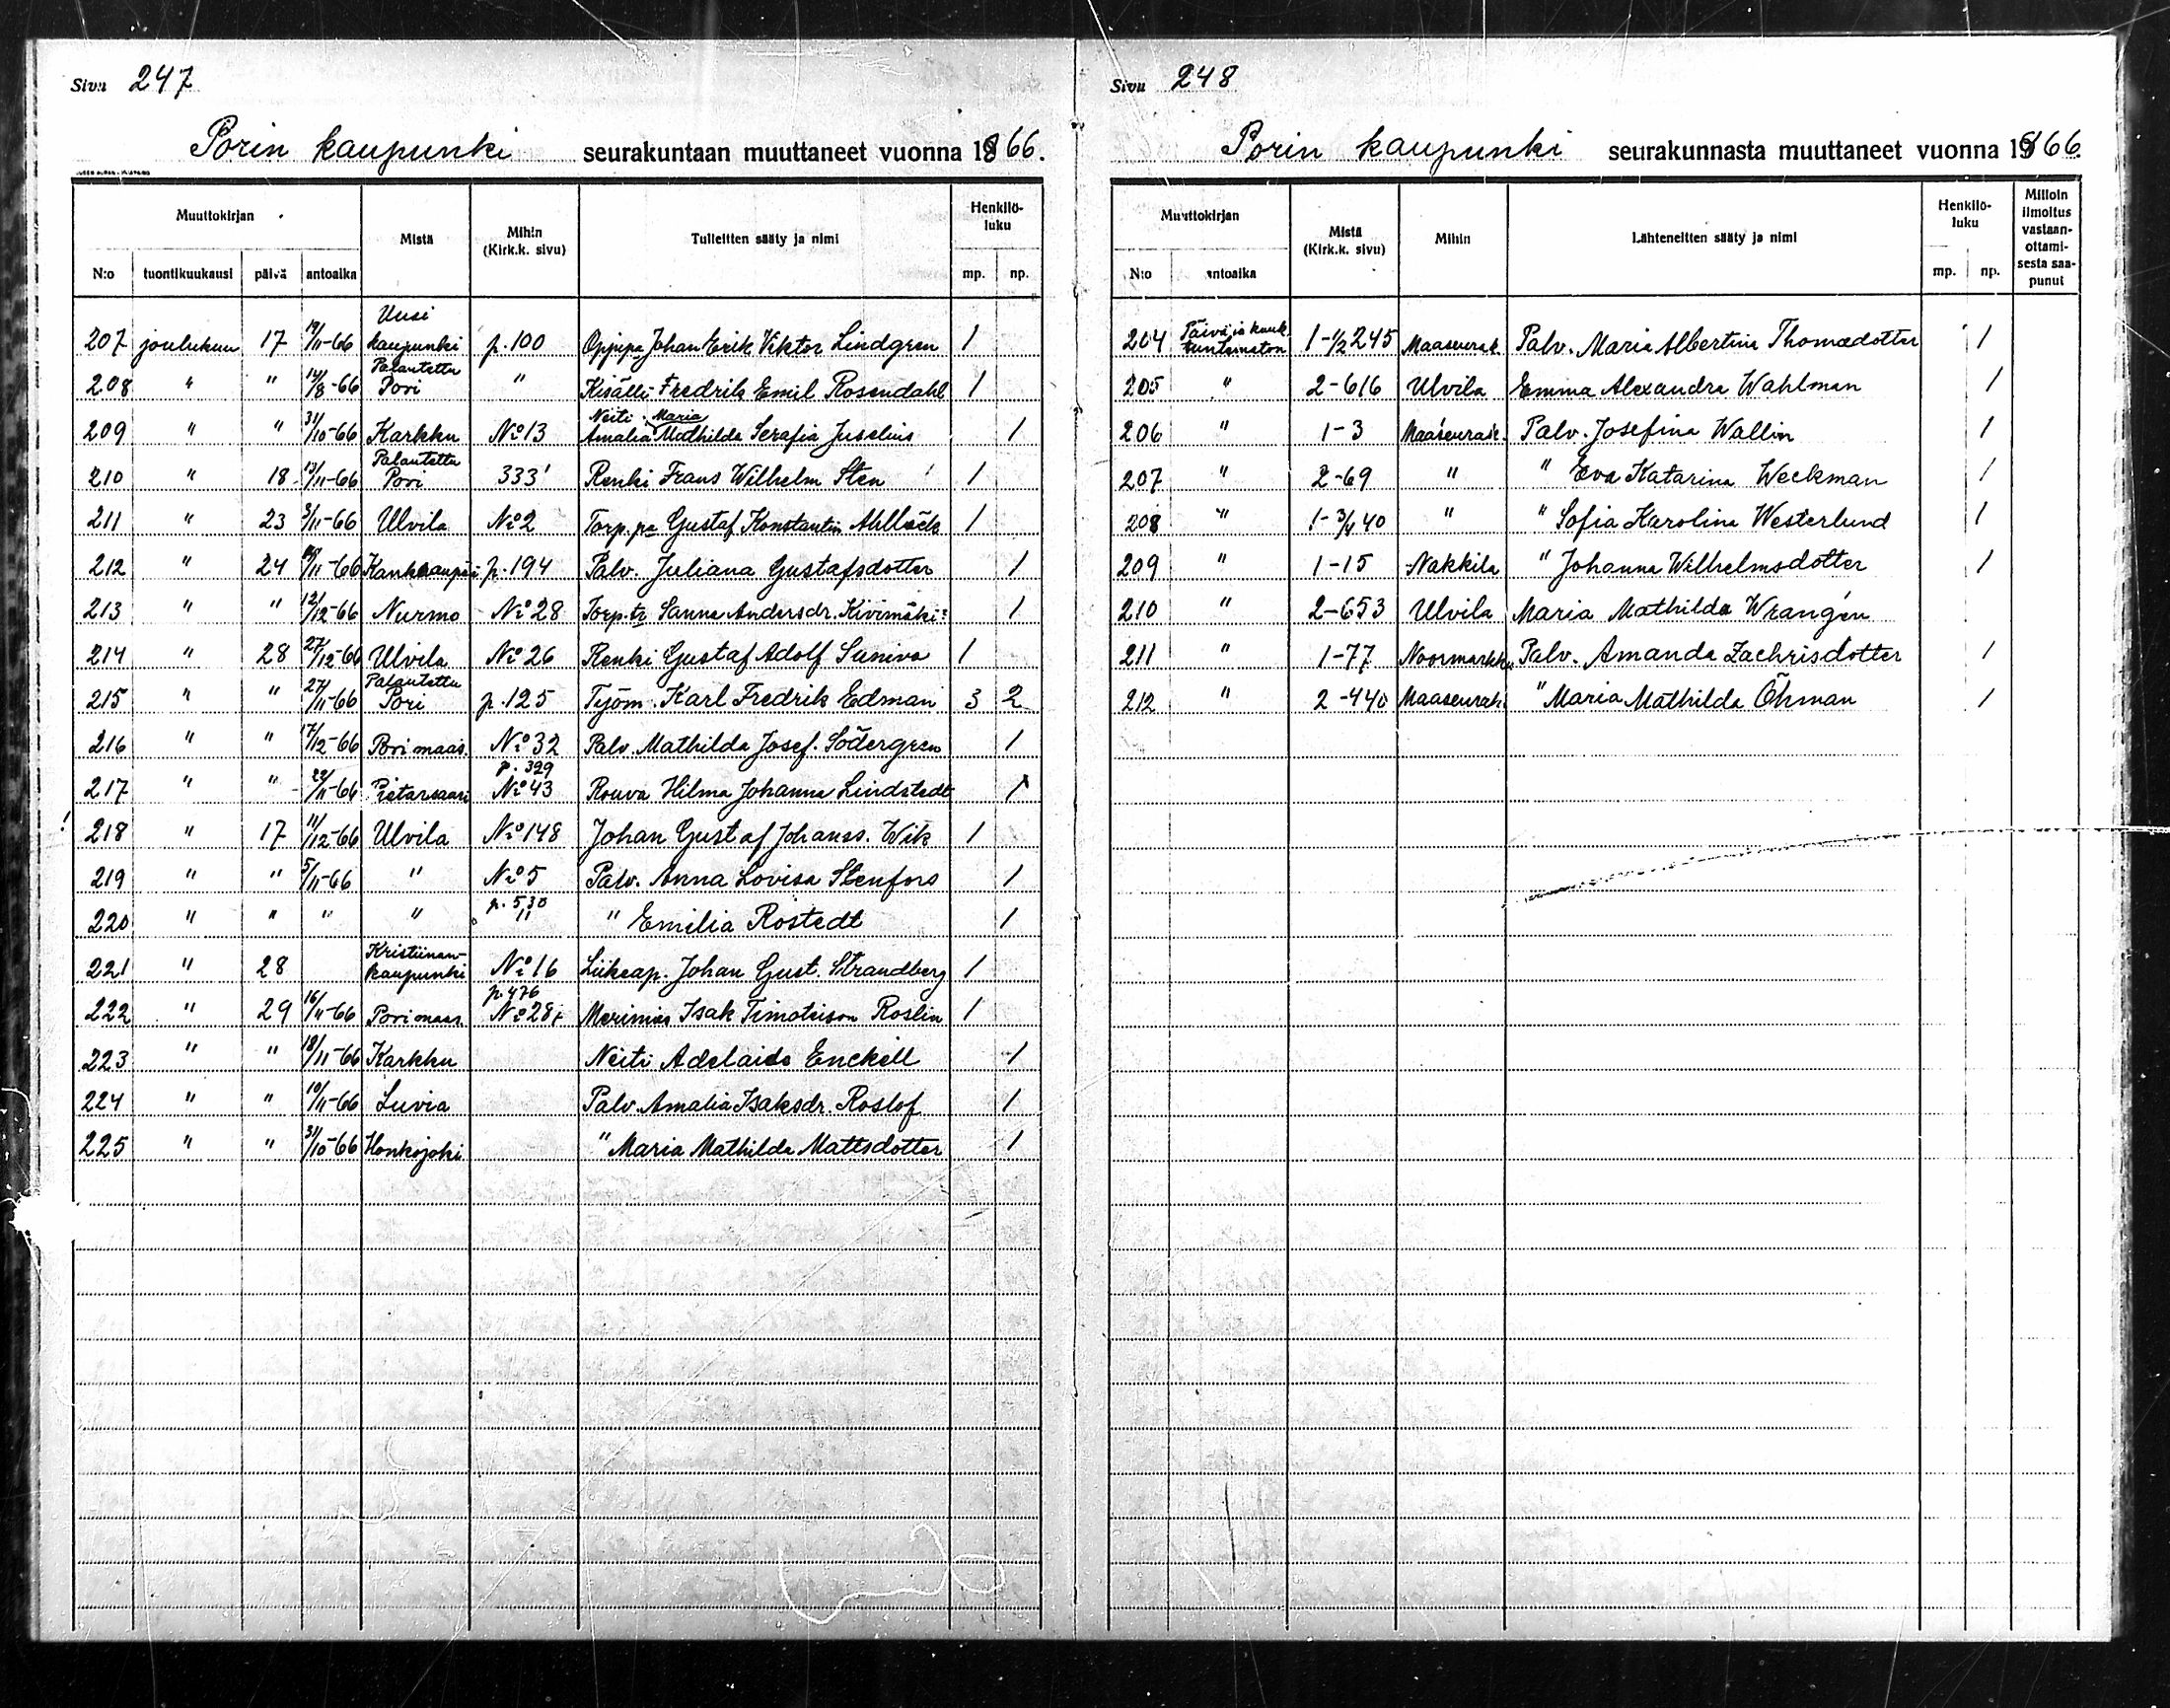 Sivu 247
Porin kaupunki seurakuntaan muuttaneet vuonna 1866.
Muuttokirjan Mistä Mihin (Kirk.k. sivu) Tulleitten sääty ja nimi Henkilö-luku
N:o tuontikuukausi päivä antoaika mp. np.
207 joulukuu 17 19/11-66 Uusi kaupunki p. 100 Oppipa Johan Erik Viktor Lindgren 1
208 " " 14/8-66 Palautettu Pori " Kisälli Fredrik Emil Rosendahl 1
209 " " 31/10-66 Karkku No 13 Neiti Amalia Maria Mathilda Serafia Juselius 1
210 " 18 13/11-66 Palautettu Pori 333 Renki Frans Wilhelm Sten 1
211 " 23 3/11-66 Ulvila No 2 Torp.pa Gustaf Konstantin Ahlbäck 1
212 " 24 /11-66 Kankaanpää p. 194 Palv. Juliana Gustafsdotter 1
213 " " 12/12-66 Nurmo No 28 Torp.tr Sanna Andersdr. Kivimäki 1
214 " 28 27/12-66 Ulvila No 26 Renki Gustaf Adolf Suniva 1
215 " " 27/11-66 Palautettu Pori p. 125 Työm. Karl Fredrik Edman 3 2
216 " " 17/12-66 Pori maas. No 32 Palv. Mathilda Josef. Södergren 1
217 " " 22/11-66 Pietarsaari p. 329 No 43 Rouva Hilma Johanna Lindstedt 1
218 " 17 11/12-66 Ulvila No 148 Johan Gustaf Johanss. Wik 1
219 " " 5/11-66 " No 5 Palv. Anna Lovisa Stenfors 1
220 " " " " p. 530 11 " Emilia Rostedt 1
221 " 28 Kristiinan-kaupunki No 16 Liikeap. Johan Gust. Strandberg 1
222 " 29 16/11-66 Pori maas. p. 476 No 28 Merimies Isak Timoteison Roslin 1
223 " " 18/11-66 Karkku Neiti Adelaide Enckell 1
224 " " 10/11-66 Luvia Palv. Amalia Isaksdr. Roslof 1
225 " " 31/10-66 Honkajoki " Maria Mathilda Mattsdotter 1
Sivu 248
Porin kaupunki seurakunnasta muuttaneet vuonna 1866.
Muuttokirjan Mistä (Kirk.k. sivu) Mihin Lähteneitten sääty ja nimi Henkilö-luku Milloin ilmoitus vastaan-ottami-sesta saa-punut
N:o antoaika mp. np.
204 Päivä ja kuuk. tuntematon 1-1/2 245 Maaseurak. Palv. Maria Albertina Thomædotter 1
205 " 2-616 Ulvila Emma Alexandra Wahlman 1
206 " 1-3 Maaseurak. Palv. Josefina Wallin 1
207 " 2-69 " " Eva Katarina Weckman 1
208 " 1-3/4 40 " " Sofia Karolina Westerlund 1
209 " 1-15 Nakkila " Johanna Wilhelmsdotter 1
210 " 2-653 Ulvila Maria Mathilda Wrangén
211 " 1-77 Noormarkku Palv. Amanda Zachrisdotter 1
212 " 2-440 Maaseurak. " Maria Mathilda Öhman 1